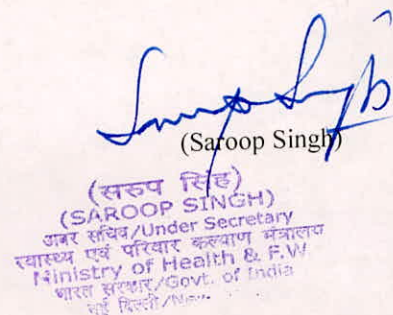 (Saroop Singh)
(सरुप सिंह)
(SAROOP SINGH)
अवर सचिव/Under Secretary
स्वास्थ्य एवं परिवार कल्याण मंत्रालय
Ministry of Health & F.W
भारत सरकार/Govt. of India
नई दिल्ली/New